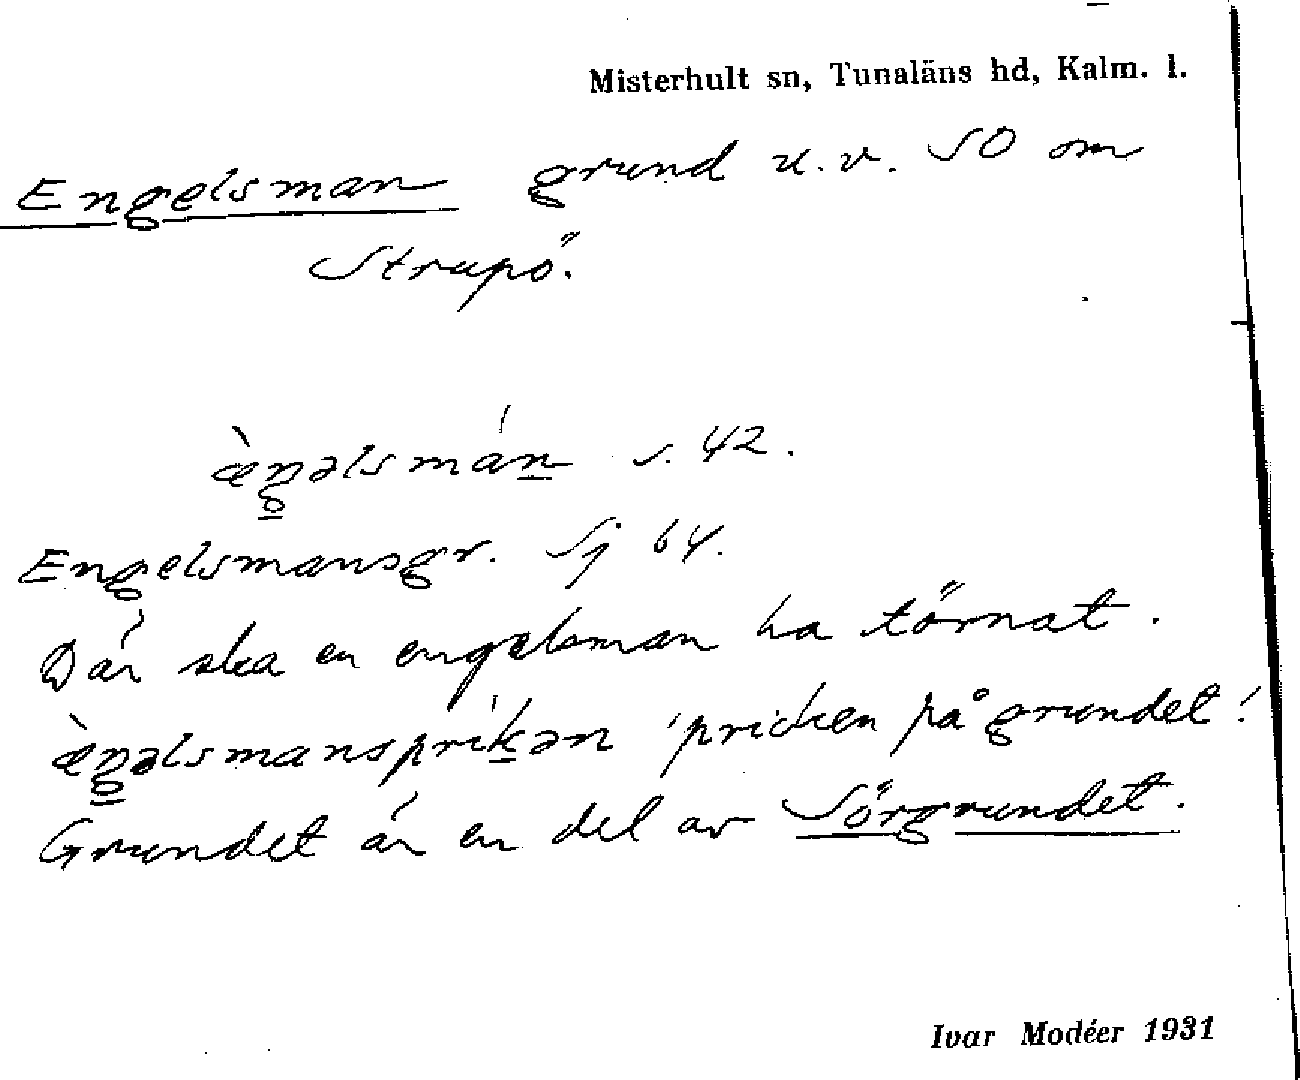 Misterhult sn, Tunaläns hd, Kalm. l.
Engelsman grund u.v. SO om
Strupö.
æ̀ŋəlsmán s. 42.
Engelsmansgr. Sj 64.
Där ska en engelsman ha törnat.
æ̀ŋəlsmansprikən 'pricken på grundet'.
Grundet är en del av Sörgrundet.
Ivar Modéer 1931